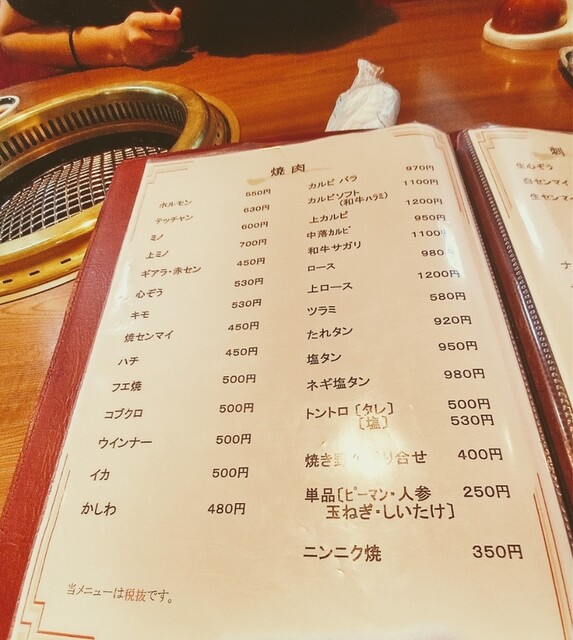 焼肉
ホルモン 550円
テッチャン 630円
ミノ 600円
上ミノ 700円
ギアラ・赤セン 450円
心ぞう 530円
キモ 530円
焼センマイ 450円
ハチ 450円
フエ焼 500円
コブクロ 500円
ウインナー 500円
イカ 500円
かしわ 480円
当メニューは税抜です。
カルビ バラ 970円
カルビソフト 1100円
(和牛ハラミ)
上カルビ 1200円
中落カルビ 950円
和牛サガリ 1100円
ロース 980円
上ロース 1200円
ツラミ 580円
たれタン 920円
塩タン 950円
ネギ塩タン 980円
トントロ〔タレ〕 500円
〔塩〕 530円
焼き野 り合せ 400円
単品〔ピーマン・人参 250円
玉ねぎ・しいたけ〕
ニンニク焼 350円
刺
生心ぞう
白センマイ
生センマイ
ナ